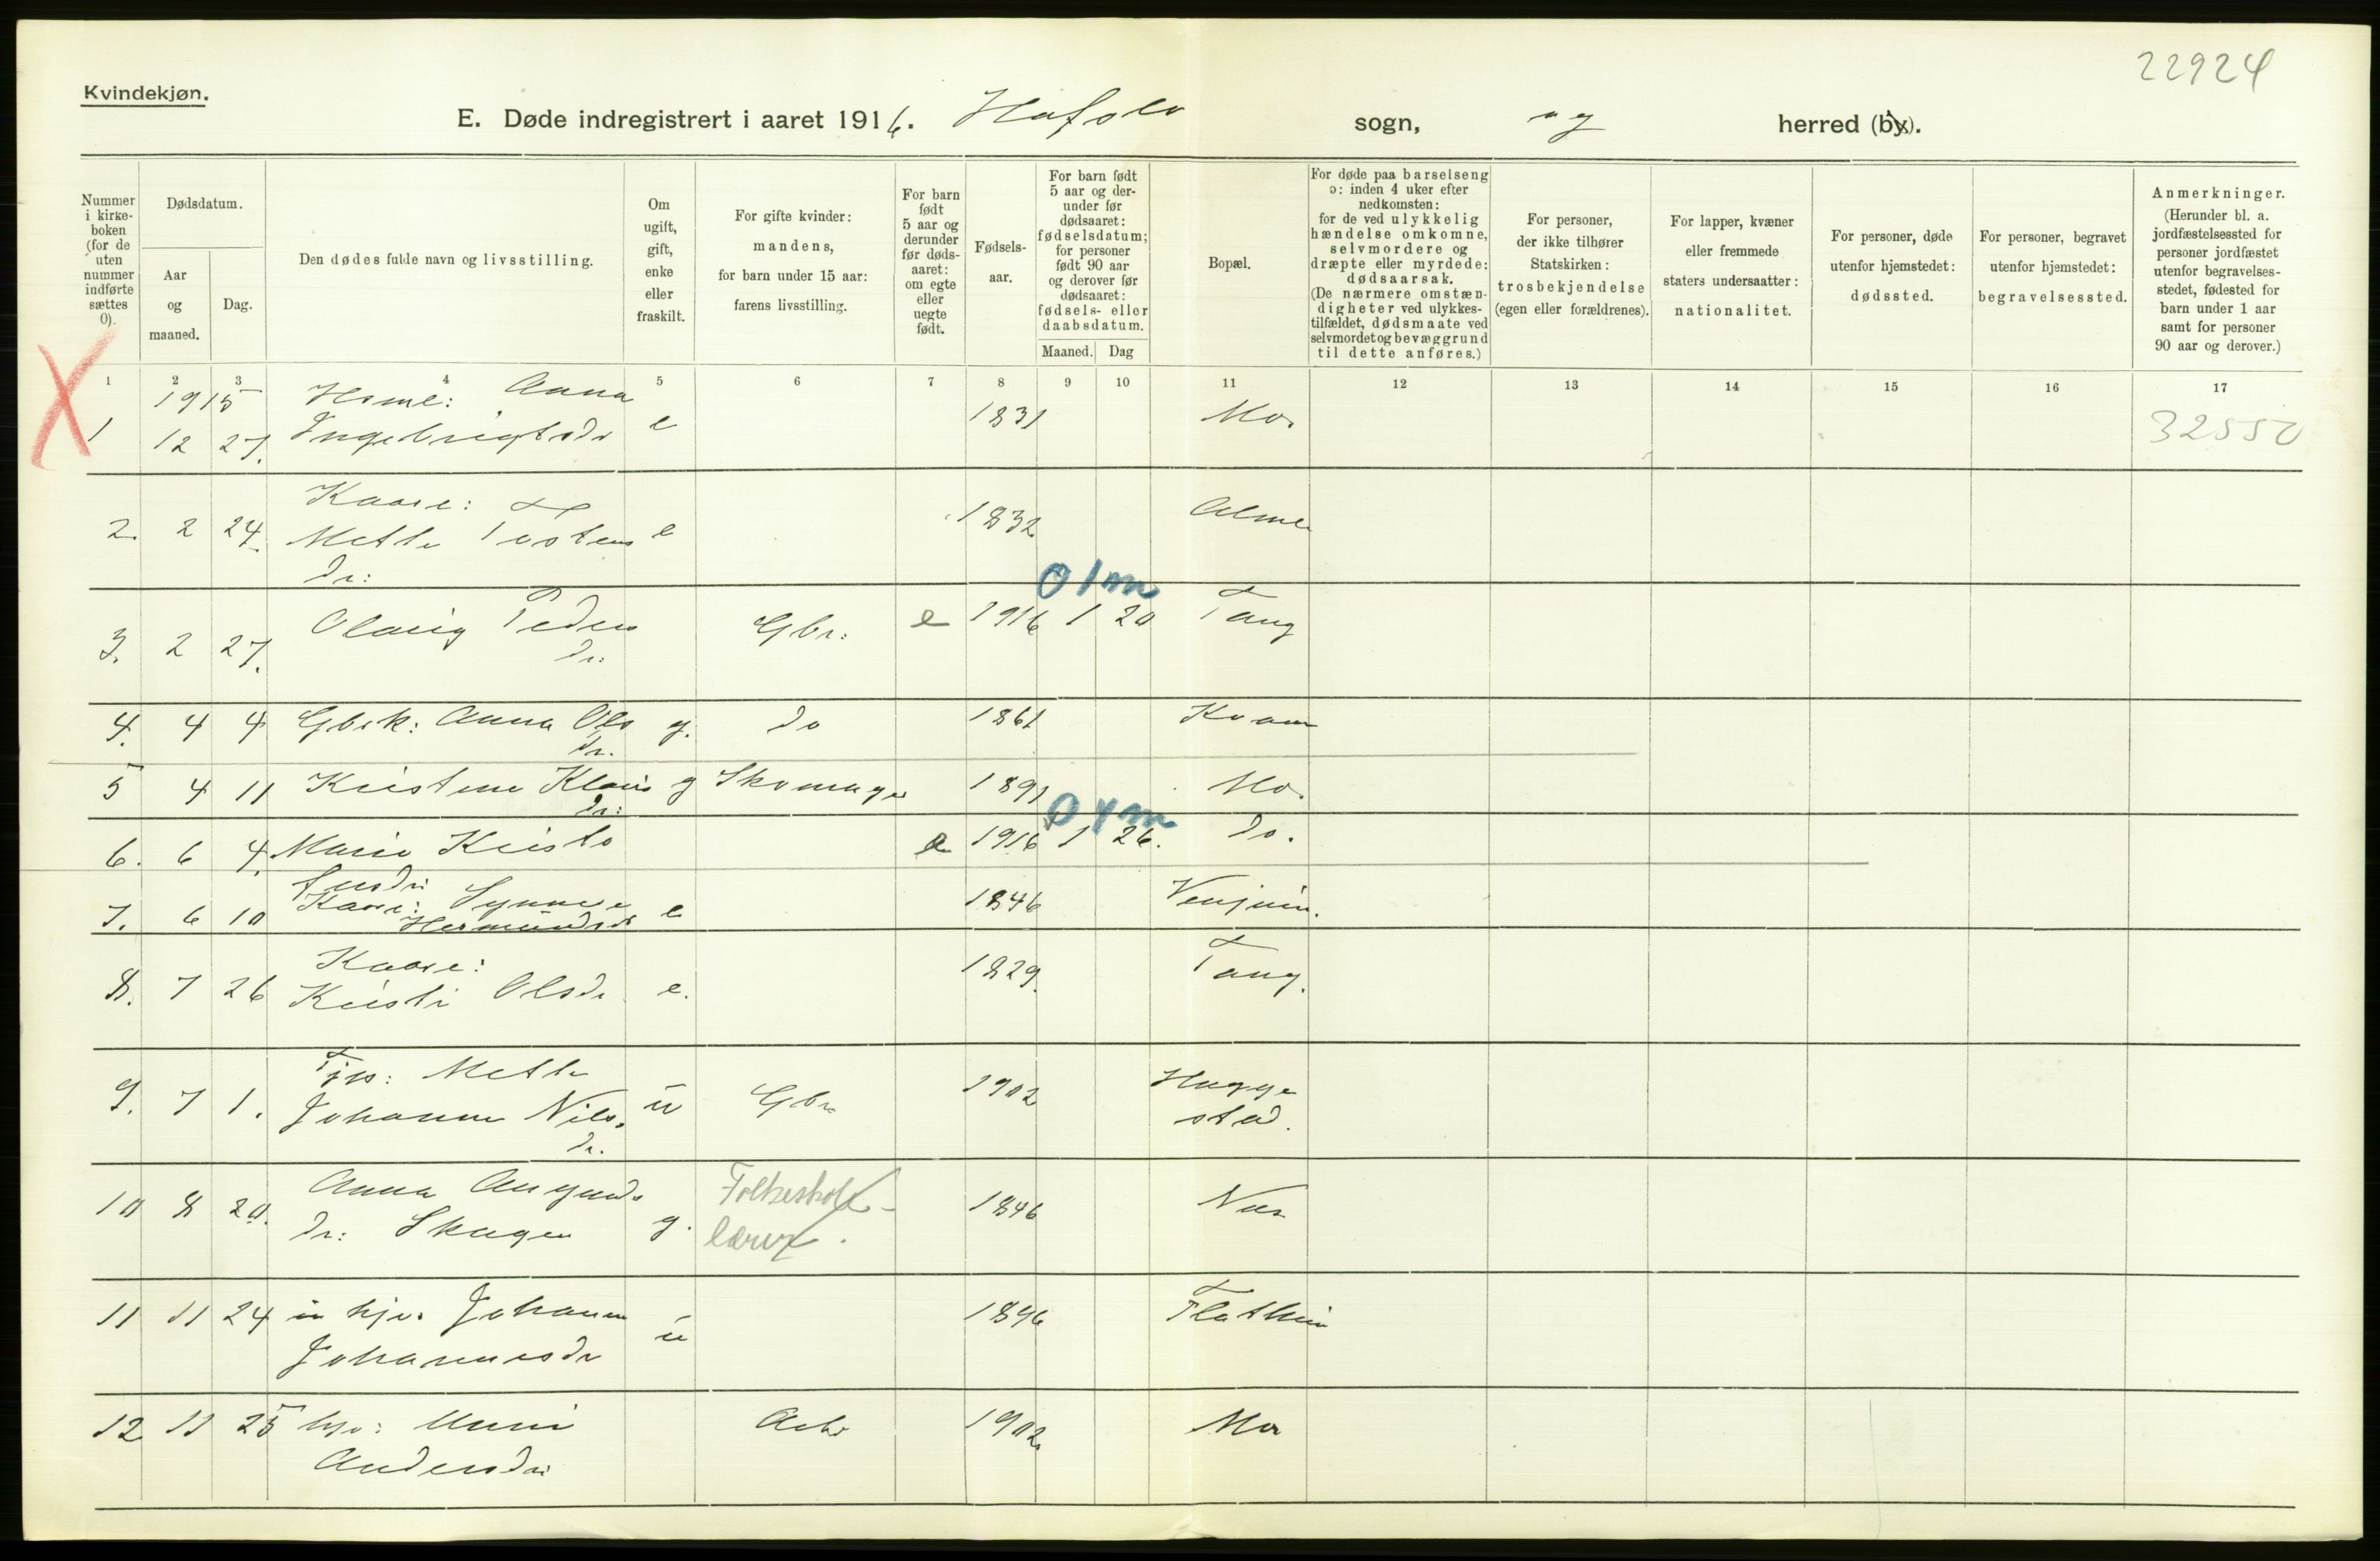 22924
Kvindekjøn.
E. Døde indregistrert i aaret 1916. Hafslo sogn, og herred (by).
Nummer i kirke-boken (for de uten nummer indførte sættes 0).
Dødsdatum.
Aar og maaned.
Dag.
Den dødes fulde navn og livsstilling.
Om ugift, gift, enke eller fraskilt.
For gifte kvinder: mandens, for barn under 15 aar: farens livsstilling.
For barn født 5 aar og derunder før døds-aaret: om egte eller uegte født.
Fødsels-aar.
For barn født 5 aar og der-under før dødsaaret: fødselsdatum; for personer født 90 aar og derover før dødsaaret: fødsels- eller daabsdatum.
Maaned. Dag
Bopæl.
For døde paa barselseng ɔ: inden 4 uker efter nedkomsten: for de ved ulykkelig hændelse omkomne, selvmordere og dræpte eller myrdede: dødsaarsak. (De nærmere omstæn-digheter ved ulykkes-tilfældet, dødsmaate ved selvmordet og bevæggrund til dette anføres.)
For personer, der ikke tilhører Statskirken: trosbekjendelse (egen eller forældrenes).
For lapper, kvæner eller fremmede staters undersaatter: nationalitet.
For personer, døde utenfor hjemstedet: dødssted.
For personer, begravet utenfor hjemstedet: begravelsessted.
Anmerkninger. (Herunder bl. a. jordfæstelsessted for personer jordfæstet utenfor begravelses-stedet, fødested for barn under 1 aar samt for personer 90 aar og derover.)
1 2 3 4 5 6 7 8 9 10 11 12 13 14 15 16 17
1915 Anna
1 12 27. Ingebrigtsdr e 1831 Mo. 32550
Kaare:
2. 2 24. Mette Tostens e 1832 Alme
dr:
0 1 m
3. 2 27. Olaug Peders Gbr: e 1916 1 20 Tang
dr:
4. 4 4 Gbrk: Anna Ols g. do 1861 Kvam
dr.
5 4 11 Kristine Klaus g Skomager 1891 Mo.
dr:
0 4 m
6. 6 4. Marie Kristo e 1916 1 26. do.
fersdr:
7. 6 10 Kaare: Synneve e 1846 Venjum.
Hermundsdr
Kaare:
8. 7 26 Kristi Olsdr e. 1829. Tang.
Mette
9. 7 1. Johanne Nils. u Gbr 1902 Hugge
dr. stad.
10 8 20. Anna Amunds Folkeskole- 1846 Nes
dr: Skagen g. lærer.
11 11 24 Johanne u 1896 Flatheim
Johannesdr
12 11 25 Unni Arb 1902 Mo
Andersdr